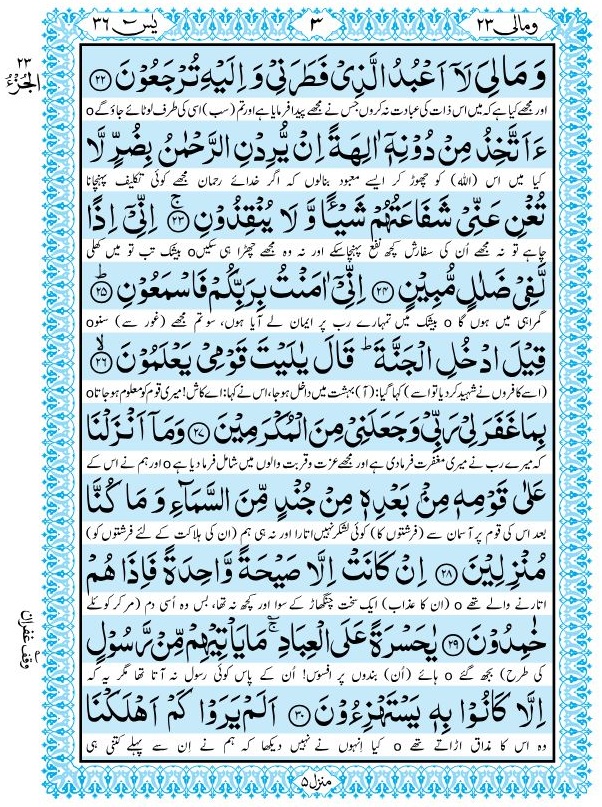 ومالی ٢٣
٣
يٰسٓ ٣٦
اَلْجُزْءُ ٢٣
وَ مَا لِيَ لَاۤ اَعْبُدُ الَّذِيْ فَطَرَنِيْ وَ اِلَيْهِ تُرْجَعُوْنَ ﴿٢٢﴾
اور مجھے کیا ہے کہ میں اس ذات کی عبادت نہ کروں جس نے مجھے پیدا فرمایا ہے اور تم (سب) اسی کی طرف لوٹائے جاؤ گے o
ءَاَتَّخِذُ مِنْ دُوْنِهٖۤ اٰلِهَةً اِنْ يُّرِدْنِ الرَّحْمٰنُ بِضُرٍّ لَّا
کیا میں اس (اللہ) کو چھوڑ کر ایسے معبود بنالوں کہ اگر خدائے رحمان مجھے کوئی تکلیف پہنچانا
تُغْنِ عَنِّيْ شَفَاعَتُهُمْ شَيْـًٔا وَّ لَا يُنْقِذُوْنِ ﴿٢٣﴾ۚ اِنِّيْۤ اِذًا
چاہے تو نہ مجھے اُن کی سفارش کچھ نفع پہنچا سکے اور نہ وہ مجھے چھڑا ہی سکیں o بیشک تب تو میں کھلی
لَّفِيْ ضَلٰلٍ مُّبِيْنٍ ﴿٢٤﴾ اِنِّيْۤ اٰمَنْتُ بِرَبِّكُمْ فَاسْمَعُوْنِ ﴿٢٥﴾ؕ
گمراہی میں ہوں گا o بیشک میں تمہارے رب پر ایمان لے آیا ہوں، سو تم مجھے (غور سے) سنو o
قِيْلَ ادْخُلِ الْجَنَّةَ ؕ قَالَ يٰلَيْتَ قَوْمِيْ يَعْلَمُوْنَ ﴿٢٦﴾ۙ
(اسے کافروں نے شہید کر دیا تو اسے) کہا گیا: (آ) بہشت میں داخل ہو جا، اس نے کہا: اے کاش! میری قوم کو معلوم ہو جاتا o
بِمَا غَفَرَ لِيْ رَبِّيْ وَ جَعَلَنِيْ مِنَ الْمُكْرَمِيْنَ ﴿٢٧﴾ وَ مَاۤ اَنْزَلْنَا
کہ میرے رب نے میری مغفرت فرما دی ہے اور مجھے عزت و قربت والوں میں شامل فرما دیا ہے o اور ہم نے اس کے
عَلٰى قَوْمِهٖ مِنْۢ بَعْدِهٖ مِنْ جُنْدٍ مِّنَ السَّمَآءِ وَ مَا كُنَّا
بعد اس کی قوم پر آسمان سے (فرشتوں کا) کوئی لشکر نہیں اتارا اور نہ ہی ہم (ان کی ہلاکت کے لئے فرشتوں کو)
مُنْزِلِيْنَ ﴿٢٨﴾ اِنْ كَانَتْ اِلَّا صَيْحَةً وَّاحِدَةً فَاِذَا هُمْ
اتارنے والے تھے o (ان کا عذاب) ایک سخت چنگھاڑ کے سوا اور کچھ نہ تھا، بس وہ اُسی دم (مر کر کوئلے
خٰمِدُوْنَ ﴿٢٩﴾ يٰحَسْرَةً عَلَى الْعِبَادِ ۚ مَا يَاْتِيْهِمْ مِّنْ رَّسُوْلٍ
کی طرح) بجھ گئے o ہائے (اُن) بندوں پر افسوس! اُن کے پاس کوئی رسول نہ آتا تھا مگر یہ کہ
وقف غفران
اِلَّا كَانُوْا بِهٖ يَسْتَهْزِءُوْنَ ﴿٣٠﴾ اَلَمْ يَرَوْا كَمْ اَهْلَكْنَا
وہ اس کا مذاق اڑاتے تھے o کیا اِنہوں نے نہیں دیکھا کہ ہم نے اِن سے پہلے کتنی ہی
منزل ۵